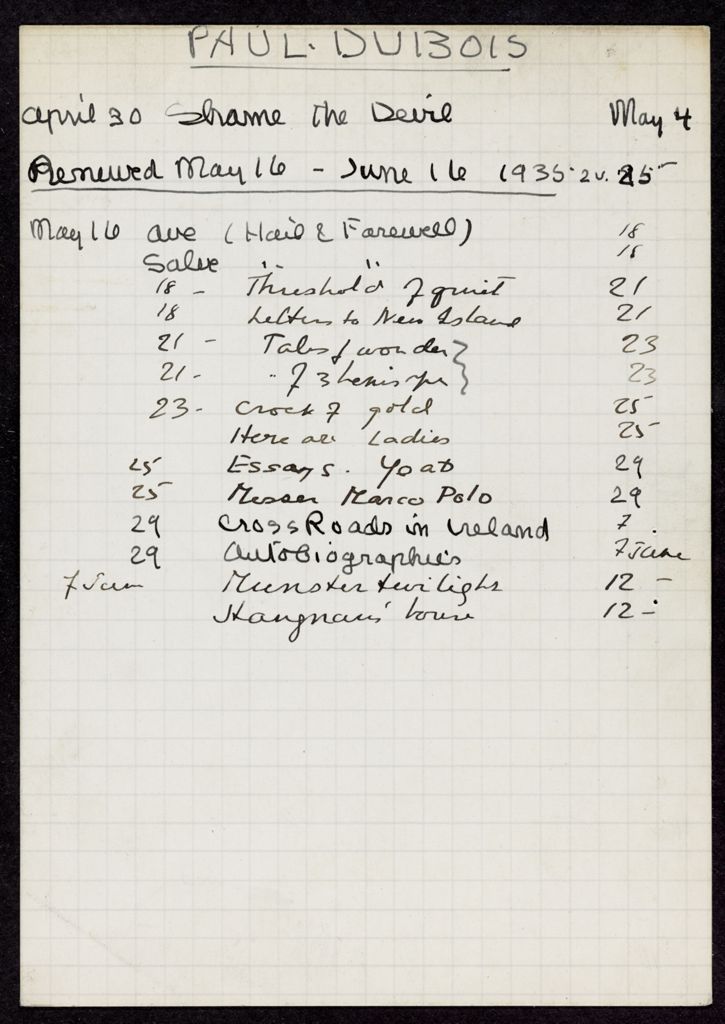 PAUL. DUBOIS
April 30 Shame the Devil May 4
Renewed May 16 - June 16 1935 2 v. 25
May 16 Ave (Hail & Farewell) 18
Salve " " 18
18 - Threshold of quiet 21
18 Letters to New Island 21
21 - Tales of wonder 23
21. " of 3 hemisper 23
23 - Crock of gold 25
Here are Ladies 25
25 Essays. Yeats 29
25 Messer Marco Polo 29
29 CrossRoads in Ireland 7
29 Autobiographies 7 June
7 June Munster twilight 12 -
Hangman's house 12 -